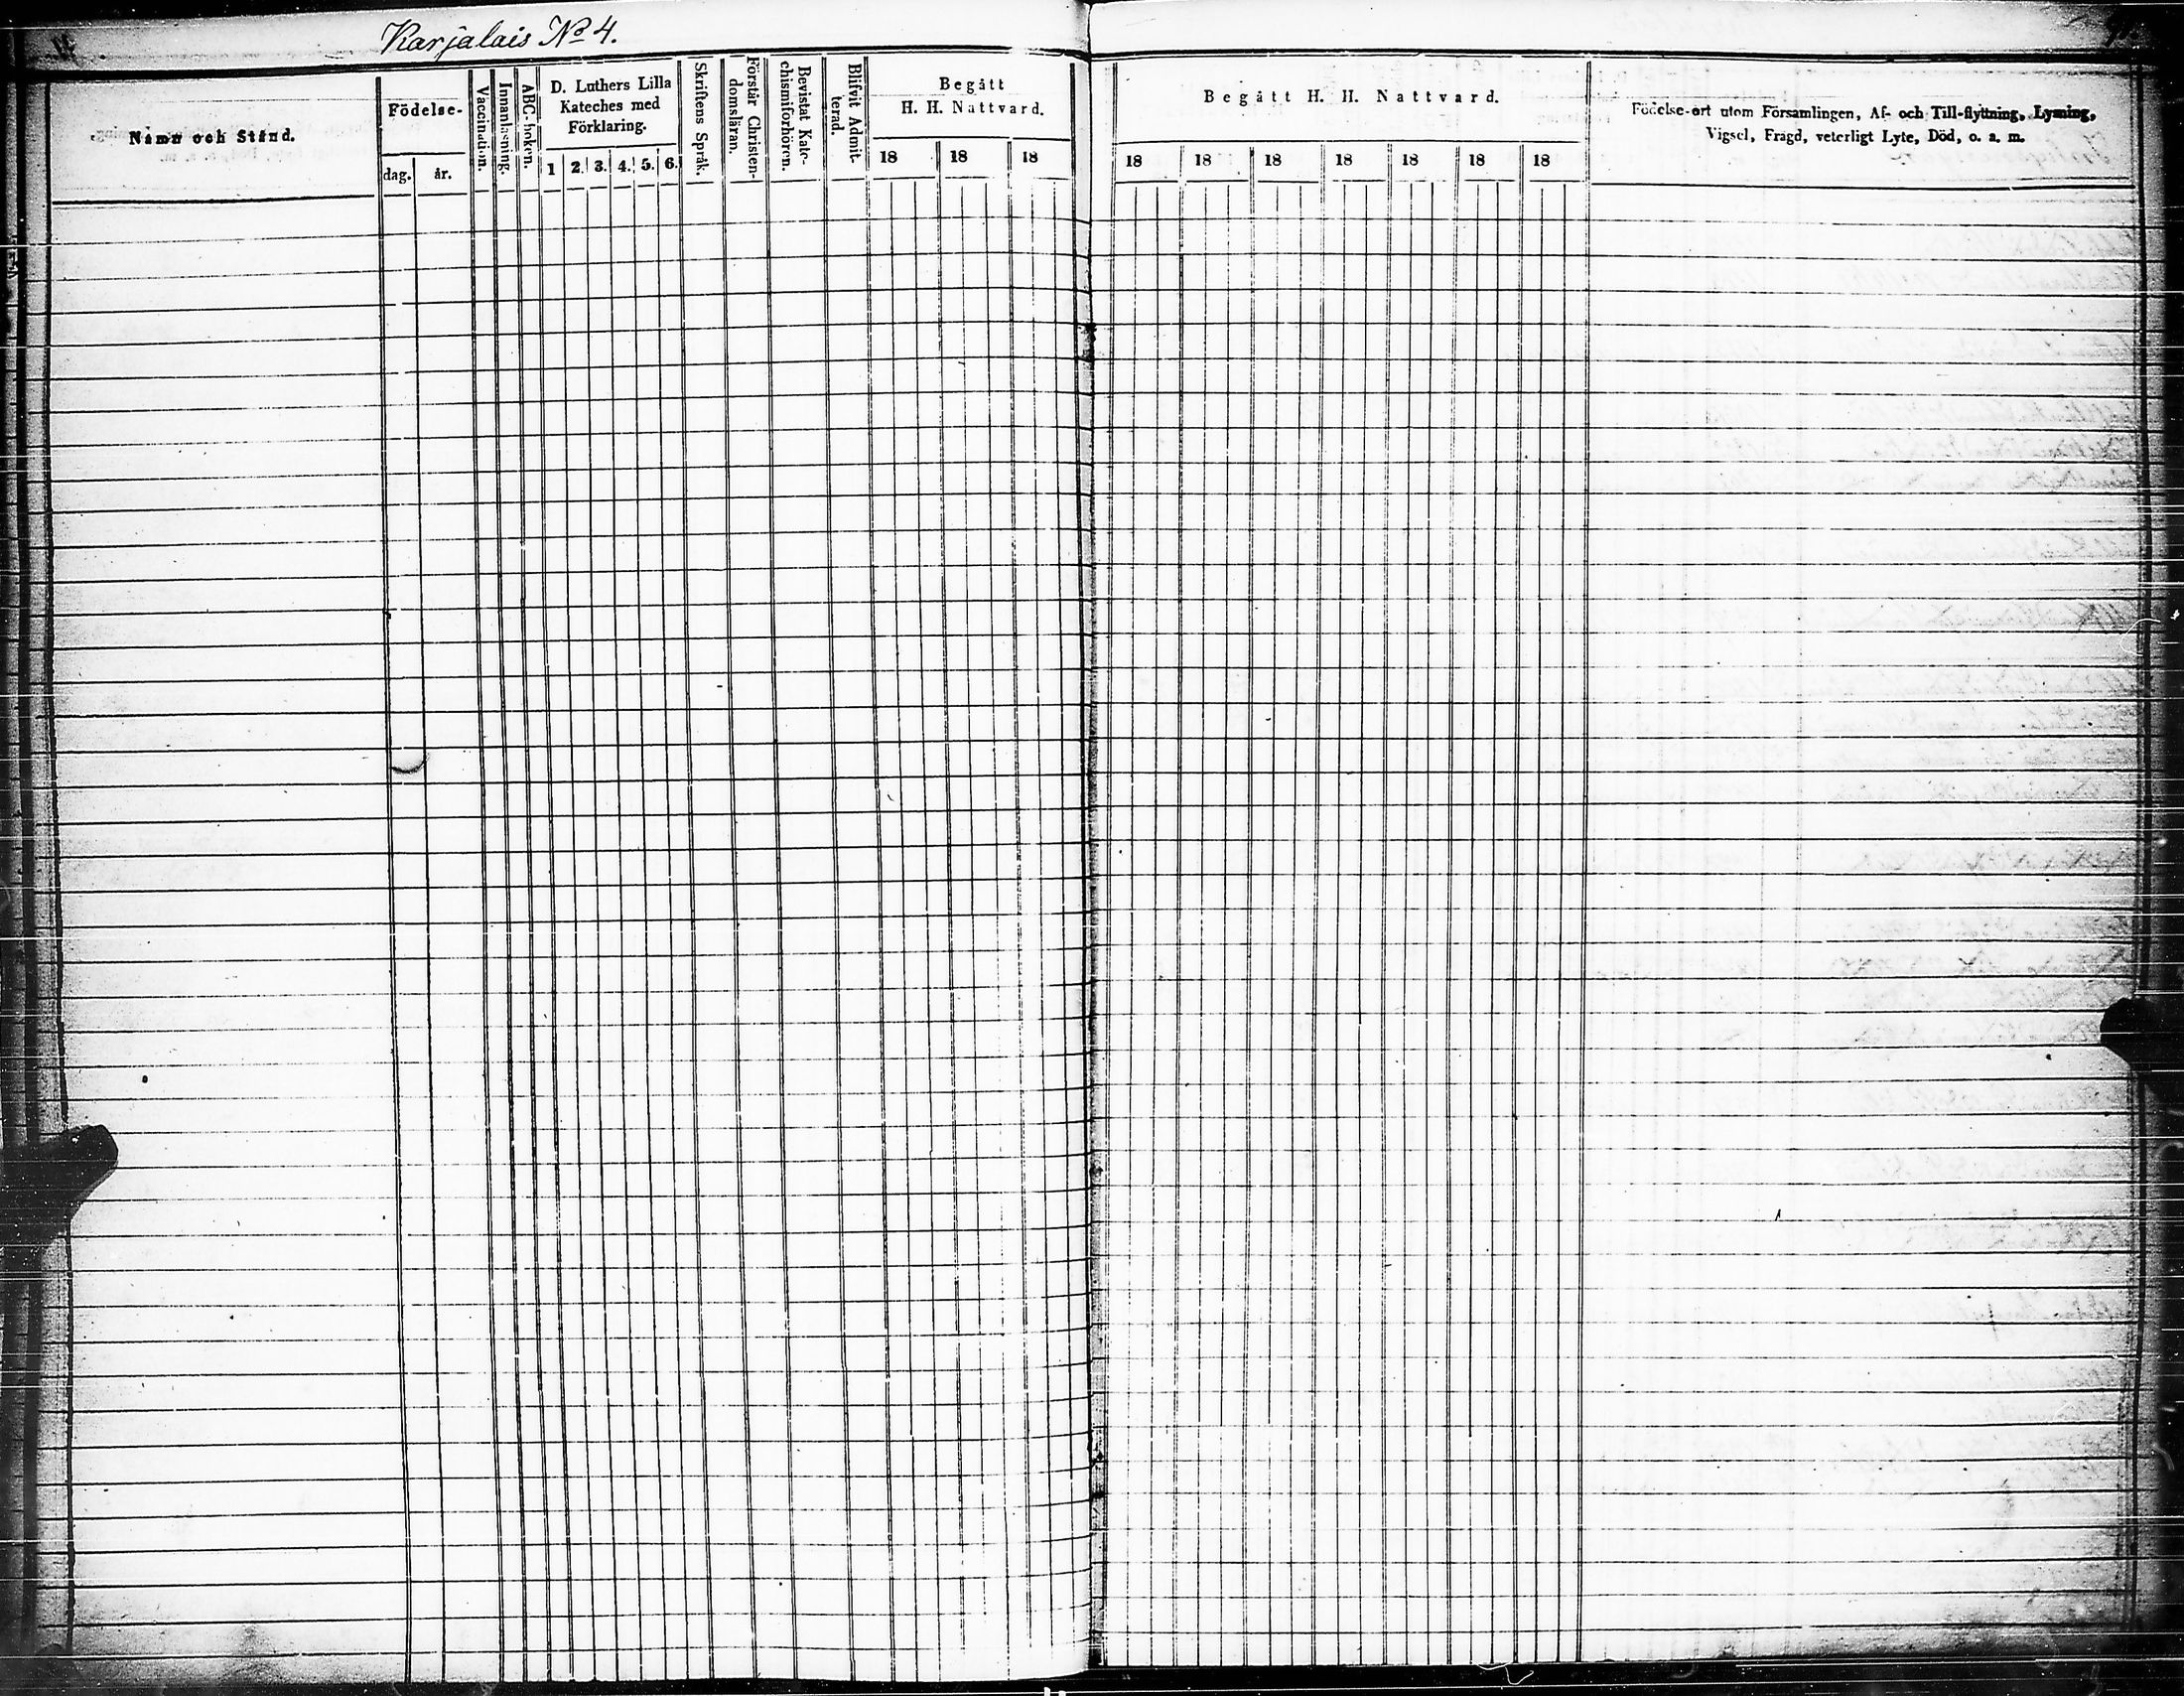 Karjalais No 4.
Namn och Stånd.
Födelse-
dag. år.
Vaccination.
Innanläsning.
ABC-boken.
D. Luthers Lilla
Kateches med
Förklaring.
1 2. 3. 4. 5. 6.
Skriftens Språk.
Förstår Christen-
domsläran.
Bevistat Kate-
chismiförhören.
Blifvit Admit-
terad.
Begått
H. H. Nattvard.
18 18 18
Begått H. H. Nattvard.
18 18 18 18 18 18 18
Födelse-ort utom Församlingen, Af- och Till-flyttning, Lysning,
Vigsel, Frägd, veterligt Lyte, Död, o. s. m.